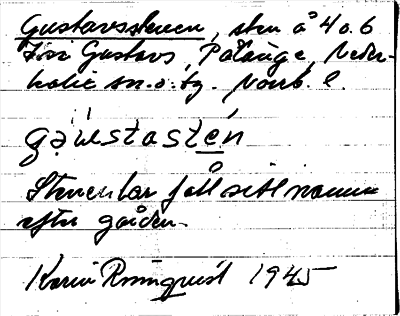 Gustavsstenen, sten å 4 o. 6
Gustavs, Pålänge, Neder-
kalix sn. o. tg. Norrb. l.
gəustastén
Stenen har fått sitt namn
efter gården.
Karin Rönnquist 1945